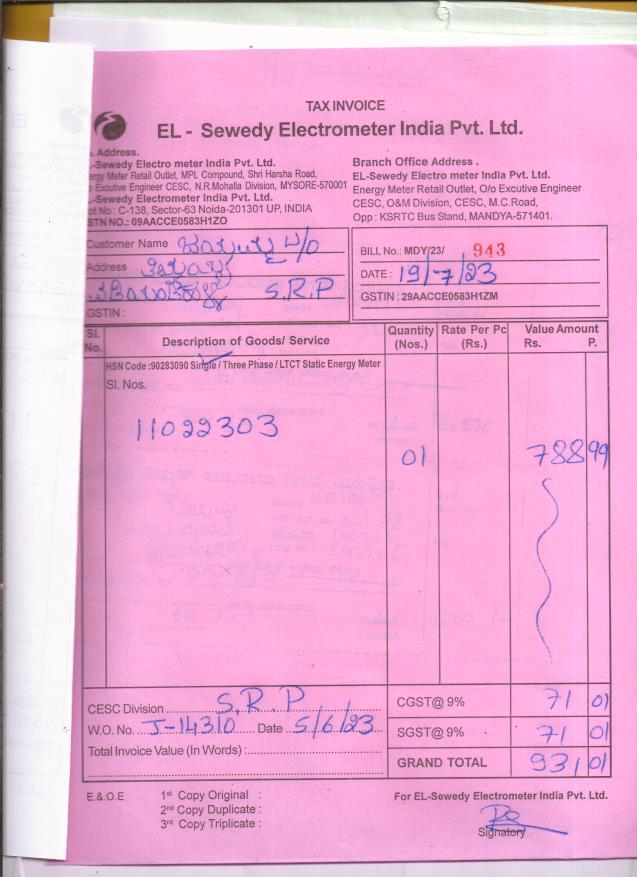 TAX INVOICE
EL - Sewedy Electrometer India Pvt. Ltd.
. Address.
L-Sewedy Electro meter India Pvt. Ltd.
ergy Meter Retail Outlet, MPL Compound, Shri Harsha Road,
Executive Engineer CESC, N.R.Mohalla Division, MYSORE-570001
L-Sewedy Electrometer India Pvt. Ltd.
ot No : C-138, Sector-63 Noida-201301 UP, INDIA
STN NO.: 09AACCE0583H1ZO
Branch Office Address .
EL-Sewedy Electro meter India Pvt. Ltd.
Energy Meter Retail Outlet, O/o Excutive Engineer
CESC, O&M Division, CESC, M.C.Road,
Opp : KSRTC Bus Stand, MANDYA-571401.
Customer Name
Address
S.R.P
GSTIN :
BILL No.: MDY/23/ 943
DATE : 19/-7/23
GSTIN : 29AACCE0583H1ZM
Sl. No. Description of Goods/ Service Quantity (Nos.) Rate Per Pc (Rs.) Value Amount Rs. P.
HSN Code :90283090 Single / Three Phase / LTCT Static Energy Meter
Sl. Nos.
11022303
01 788 99
CESC Division S.R.P
W.O. No. J-14310 Date 5/6/23
Total Invoice Value (In Words) :
CGST@ 9% 71 01
SGST@ 9% 71 01
GRAND TOTAL 931 01
E.&.O.E 1st Copy Original :
2nd Copy Duplicate :
3rd Copy Triplicate :
For EL-Sewedy Electrometer India Pvt. Ltd.
Signatory